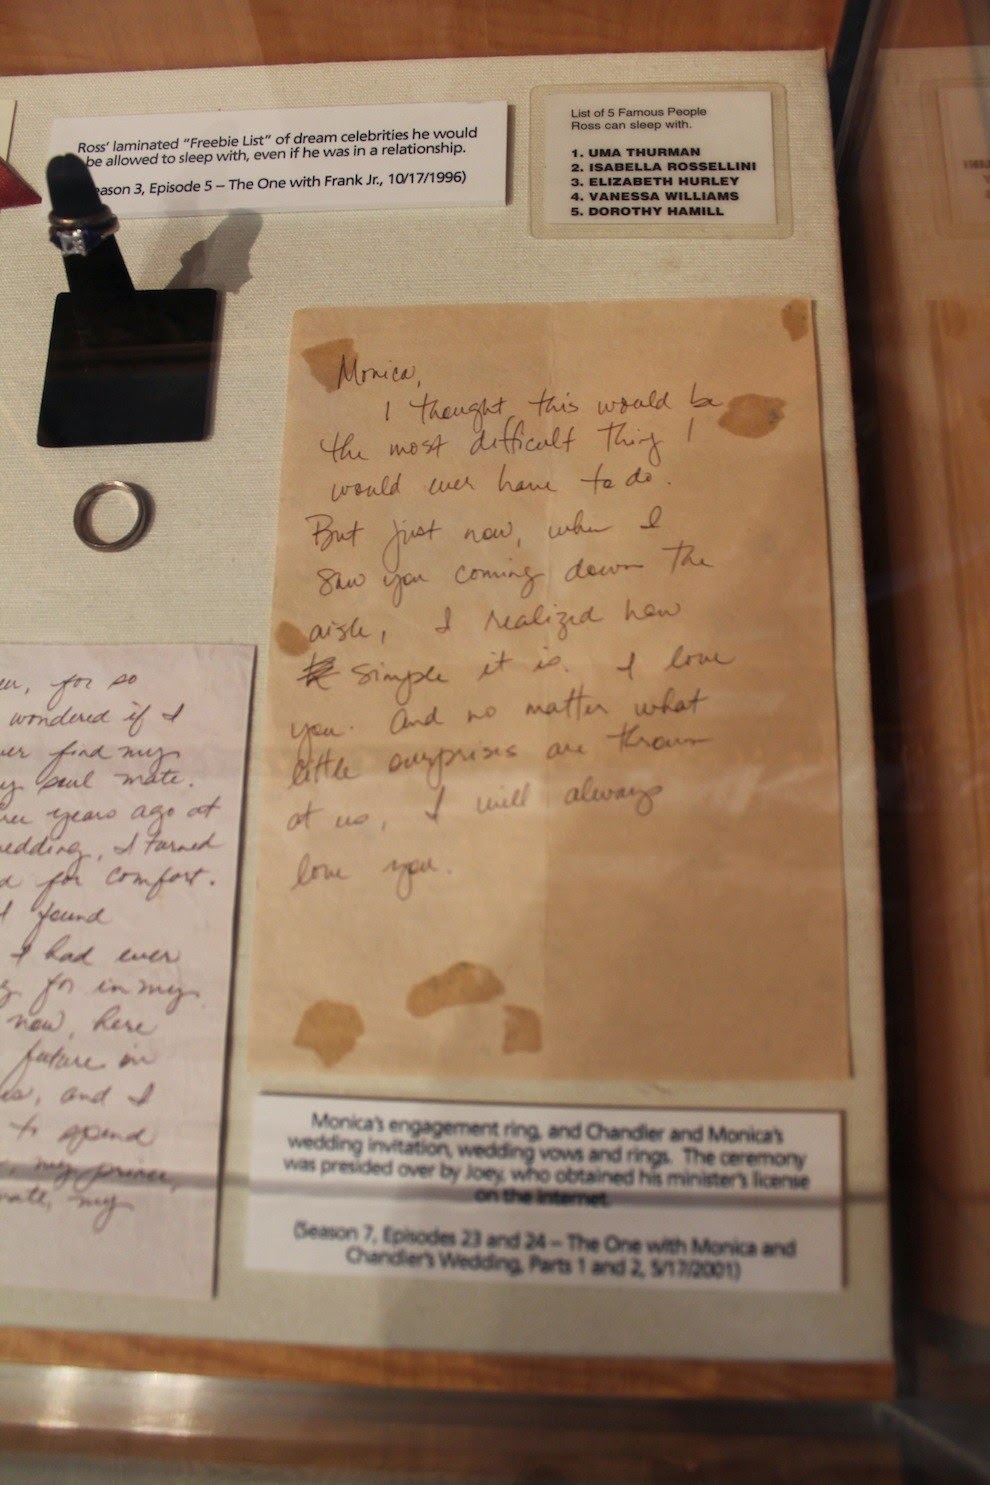 Ross' laminated "Freebie List" of dream celebrities he would
be allowed to sleep with, even if he was in a relationship.
eason 3, Episode 5 – The One with Frank Jr., 10/17/1996)
List of 5 Famous People
Ross can sleep with.
1. UMA THURMAN
2. ISABELLA ROSSELLINI
3. ELIZABETH HURLEY
4. VANESSA WILLIAMS
5. DOROTHY HAMILL
Monica,
I thought this would be
the most difficult thing I
would ever have to do.
But just now, when I
saw you coming down the
aisle, I realized how
simple it is. I love
you. And no matter what
little surprises are thrown
at us, I will always
love you.
for so
wondered if I
find my
soul mate.
years ago at
edding, I turned
for comfort.
I found
I had ever
for in my
now, here
future in
and I
to spend
my prince,
mate, my
Monica's engagement ring, and Chandler and Monica's
wedding invitation, wedding vows and rings. The ceremony
was presided over by Joey, who obtained his minister's license
on the internet.
(Season 7, Episodes 23 and 24 – The One with Monica and
Chandler's Wedding, Parts 1 and 2, 5/17/2001)